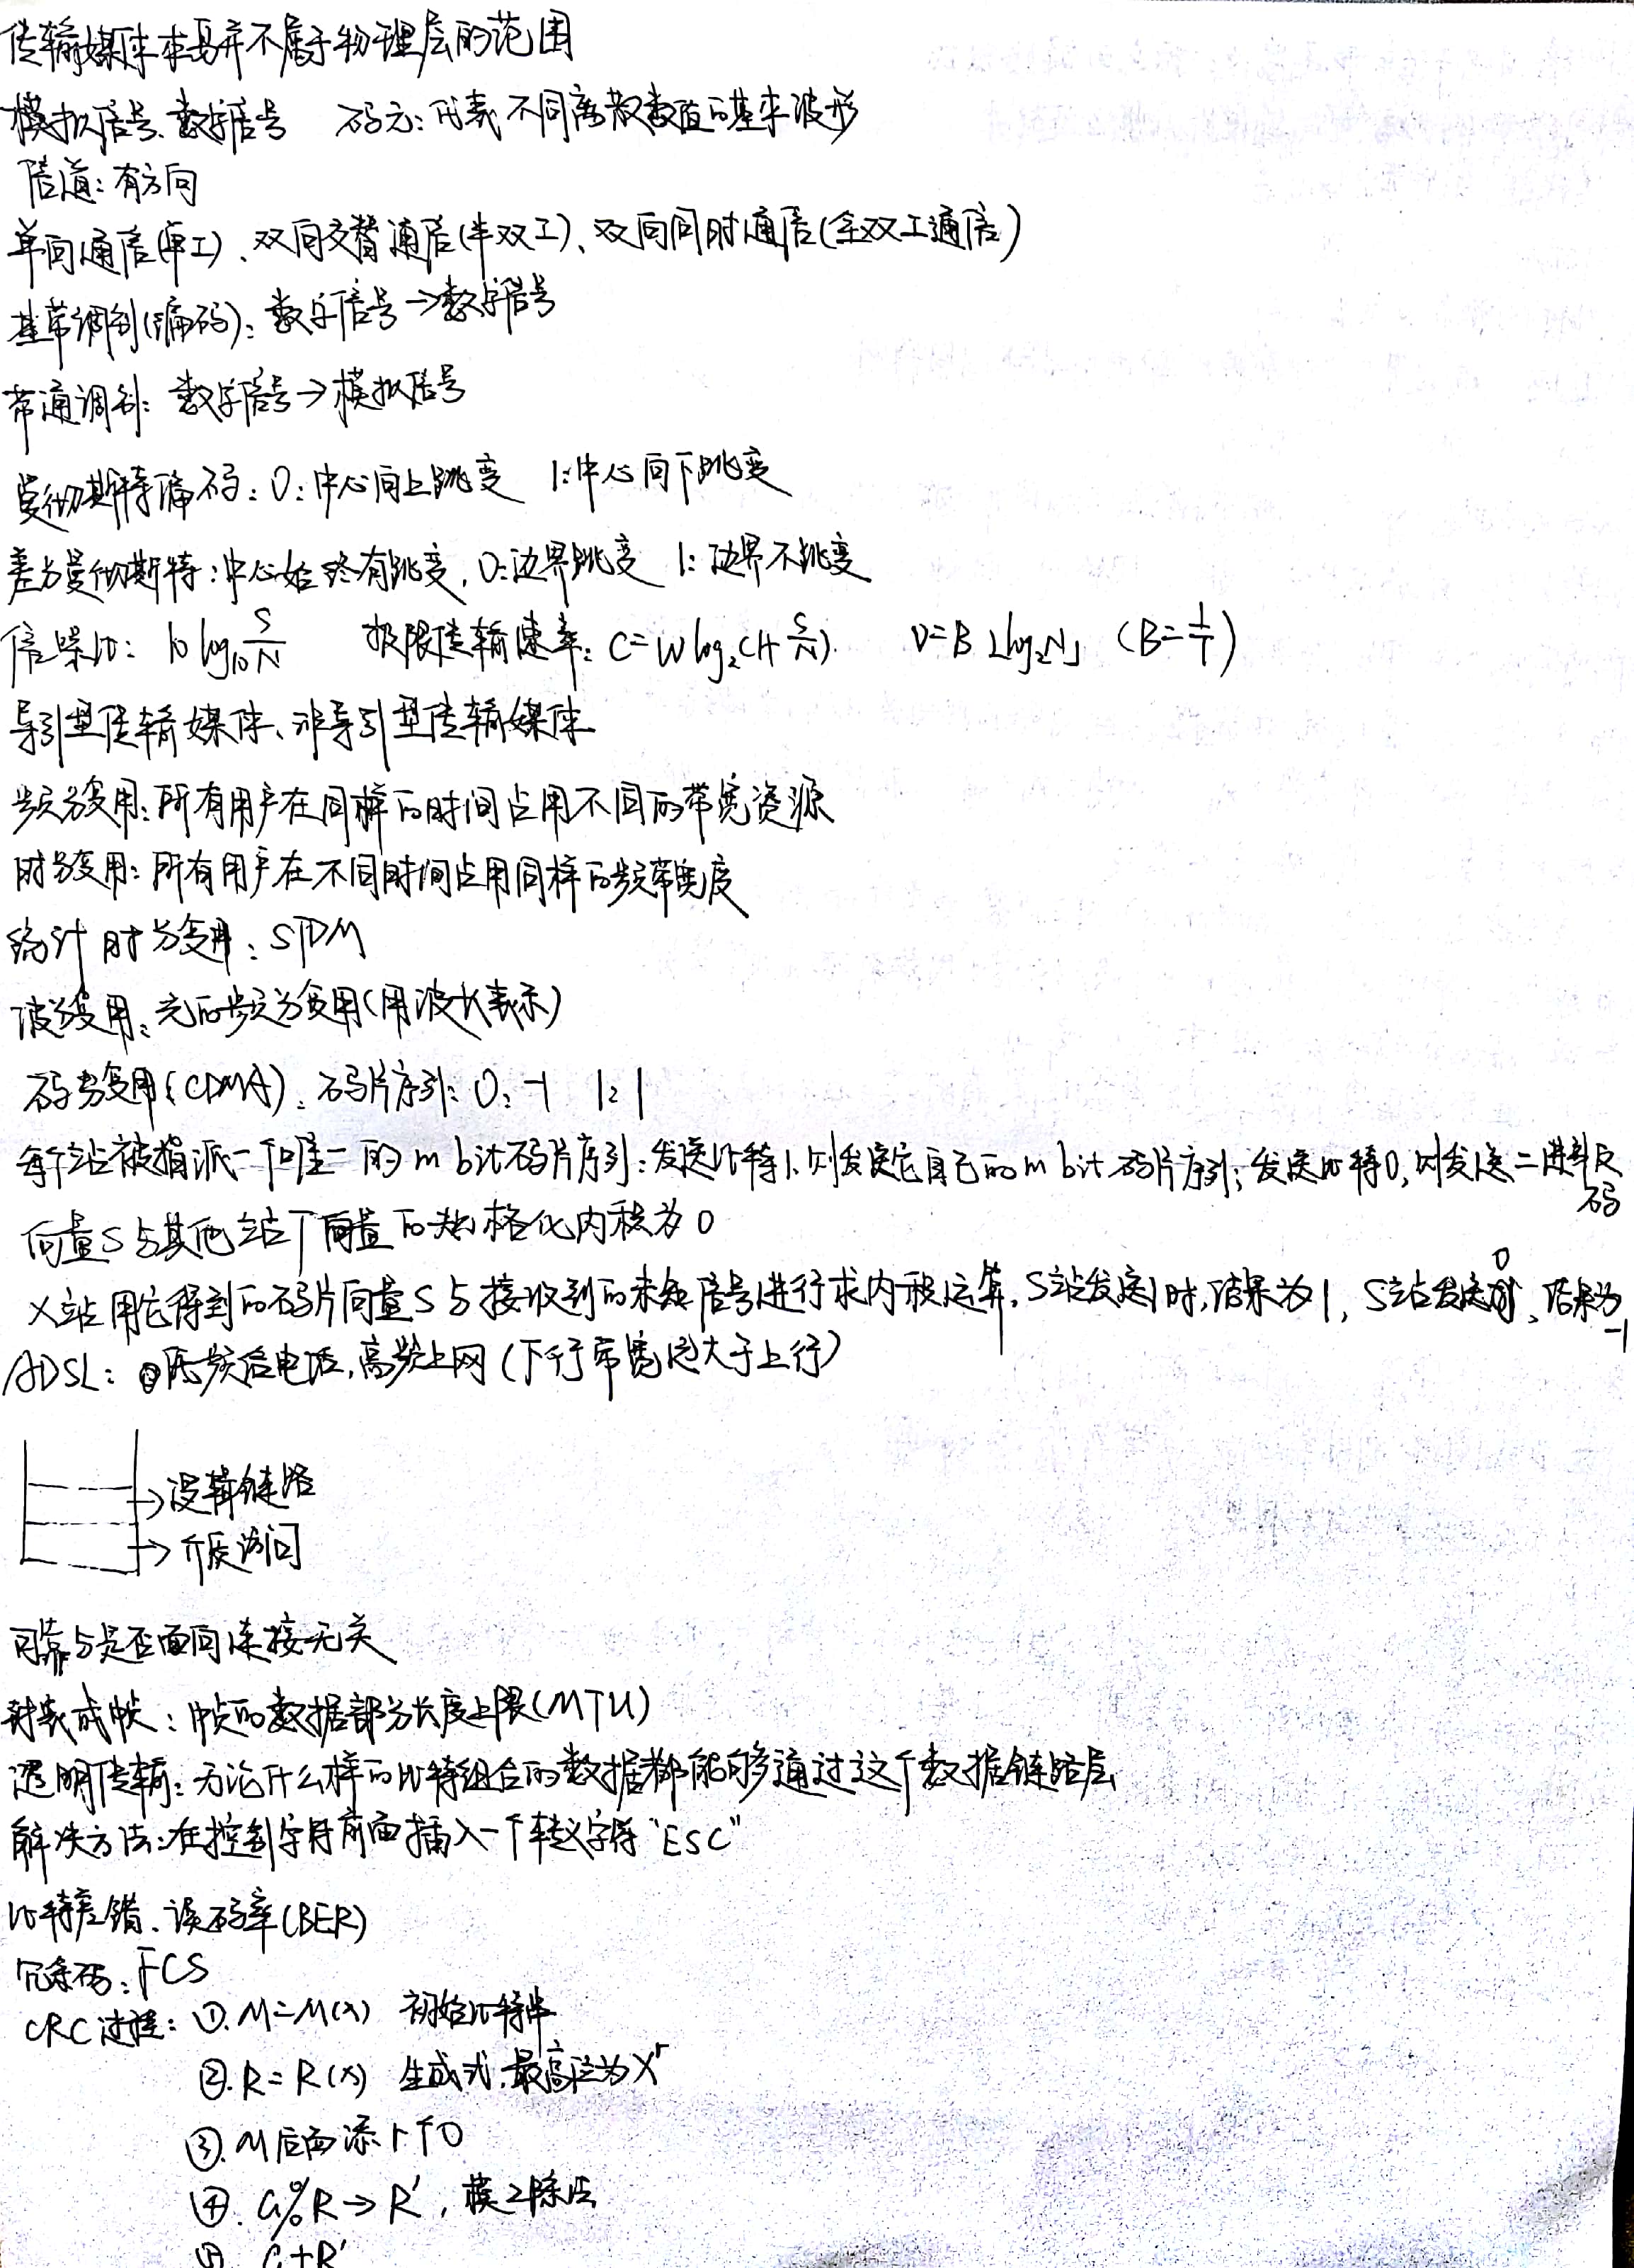 传输媒体本身并不属于物理层的范围
模拟信号、数字信号 码元:代表不同离散数值的基本波形
信道:有方向
单向通信(单工)、双向交替通信(半双工)、双向同时通信(全双工通信)
基带调制(编码):数字信号→数字信号
带通调制:数字信号→模拟信号
曼彻斯特编码:0:中心向上跳变 1:中心向下跳变
差分曼彻斯特:中心始终有跳变,0:边界跳变 1:边界不跳变
信噪比:10 log₁₀ S/N 极限传输速率:C=W log₂(1+ S/N). V=B⌊log₂N⌋ (B=1/T)
导引型传输媒体、非导引型传输媒体
频分复用:所有用户在同样的时间占用不同的带宽资源
时分复用:所有用户在不同时间占用同样的频带宽度
统计时分复用:STDM
波分复用:光的频分复用(用波长表示)
码分复用(CDMA):码片序列:0:-1 1:1
每个站被指派一个唯一的 m bit码片序列:发送比特1,则发送它自己的m bit码片序列;发送比特0,则发送二进制反码
向量S与其他站T向量的规格化内积为0
X站用它得到的码片向量S与接收到的未知信号进行求内积运算,S站发送1时,结果为1,S站发送0时,结果为-1
ADSL:低频给电话,高频上网(下行带宽远大于上行)
→逻辑链路
→介质访问
可靠与是否面向连接无关
封装成帧:帧的数据部分长度上限(MTU)
透明传输:无论什么样的比特组合的数据都能够通过这个数据链路层
解决方法:在控制字符前面插入一个转义字符"ESC"
比特差错、误码率(BER)
冗余码:FCS
CRC过程:①.M=M(X) 初始比特串
②.R=R(X) 生成式,最高位为Xʳ
③.M后面添r个0
④.G%R→R′,模2除法
⑤.G+R′